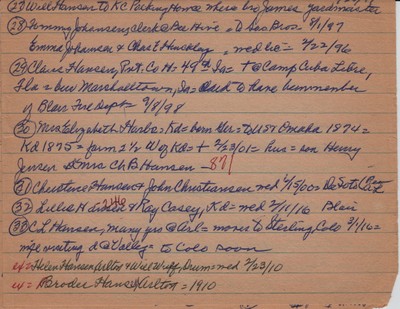 (27) Will Hansen to KC Packing House where bro James yardmaster
(28) Jimmy Johansen, clerk @ Bee Hive, to Bros = 8/1/97
Emma Johansen & Chas E Hinckley, med lic = 2/22/96
(29) Claus Hansen, Pvt. Co H, 49th Ia = + @ Camp Cuba Libre,
Fla = bur Marshalltown, Ia = said to have been member
of Blair Fire Dept = 9/8/98
(30) Mrs Elizabeth = Kd = born Ger = to US + Omaha 1874 =
Kd 1875 = farm 2½ W of Kd = + 2/23/01 = hus = son Henry
Jensen & Mrs Ch B Hansen - 87
(31) Christine Hansen & John Christiansen med 2/15/00 = DeSoto
(32) Lillie & Ray Casey, Kd = med 2/11/16 Blair
(33) C L Hansen, many yrs @ Arl = moves to Sterling Colo 3/1/16 =
@ Valley = to Colo soon
x4 = Helen Hansen Arlton & Will Wulff, Drum = med 2/23/10
x4 = Brodee Hansen, Arlton = 1910